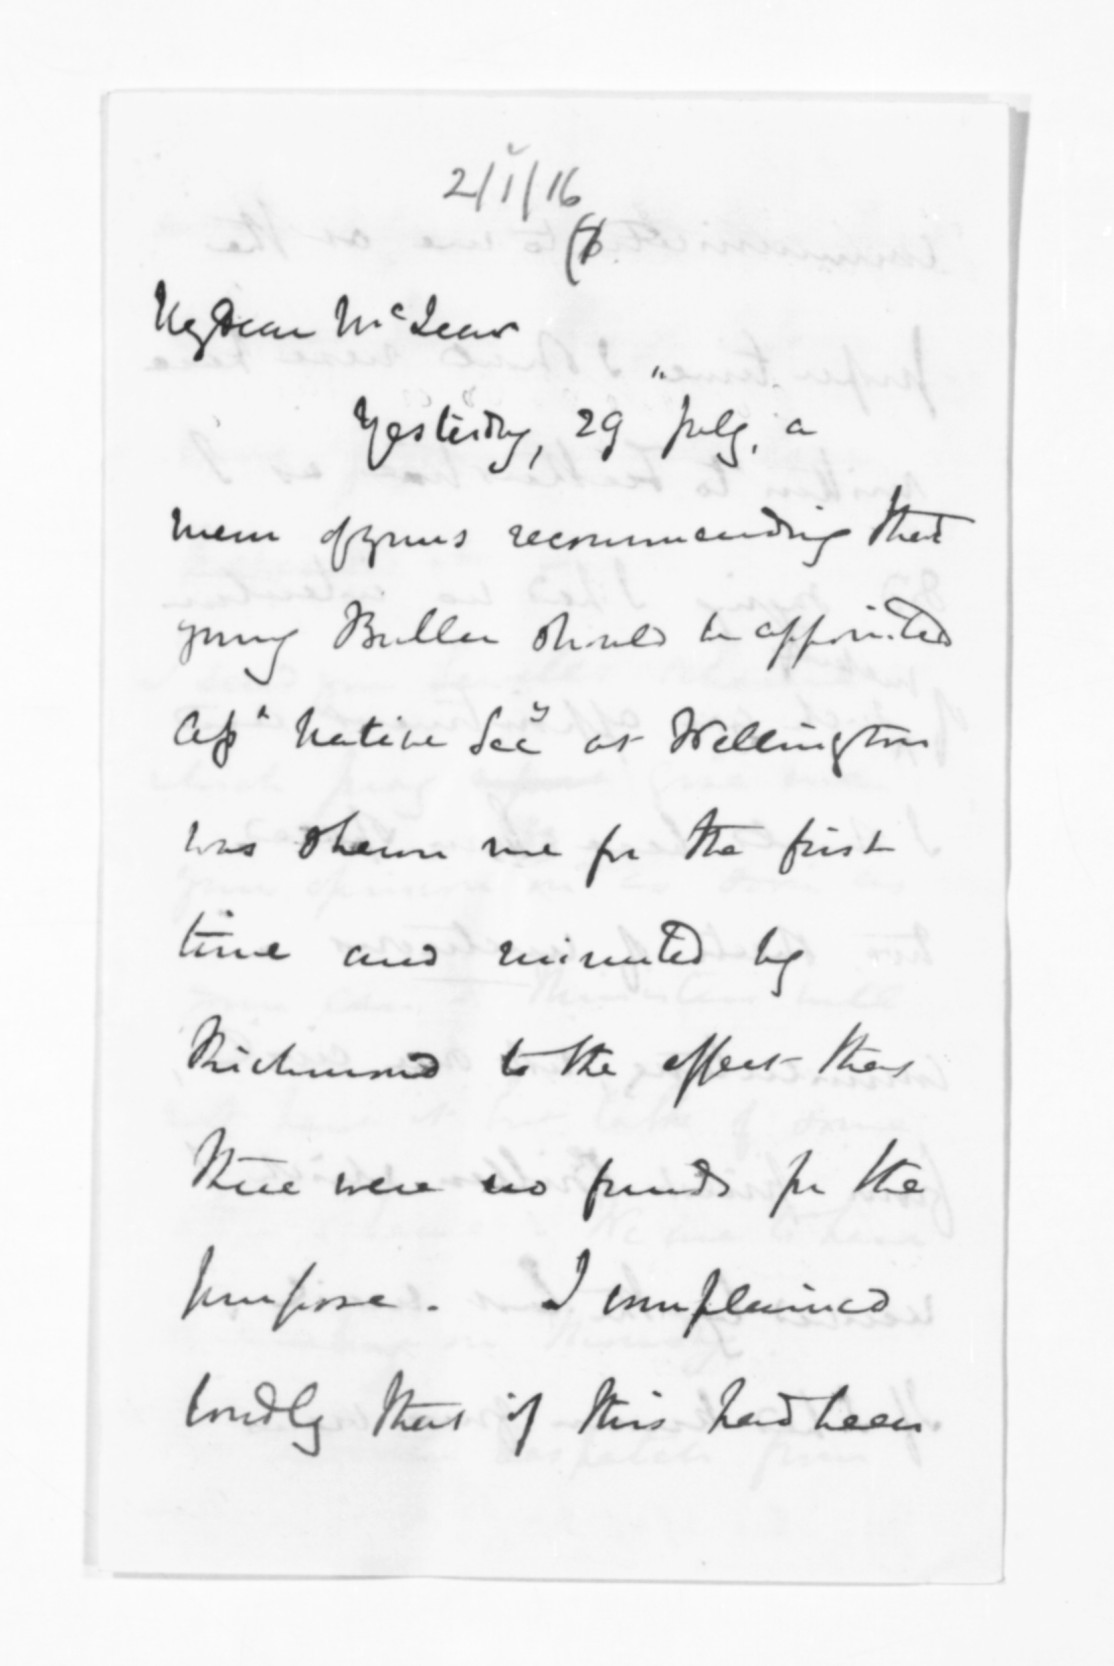 2/1/16
My dear McLean
Yesterday, 29 July, a
mem of yours recommending that
young Buller should be appointed
Asst Native Secy at Wellington
was shewn me for the first
time and minuted by
Richmond to the effect that
there were no funds for the
purpose. I complained
loudly that if this had been